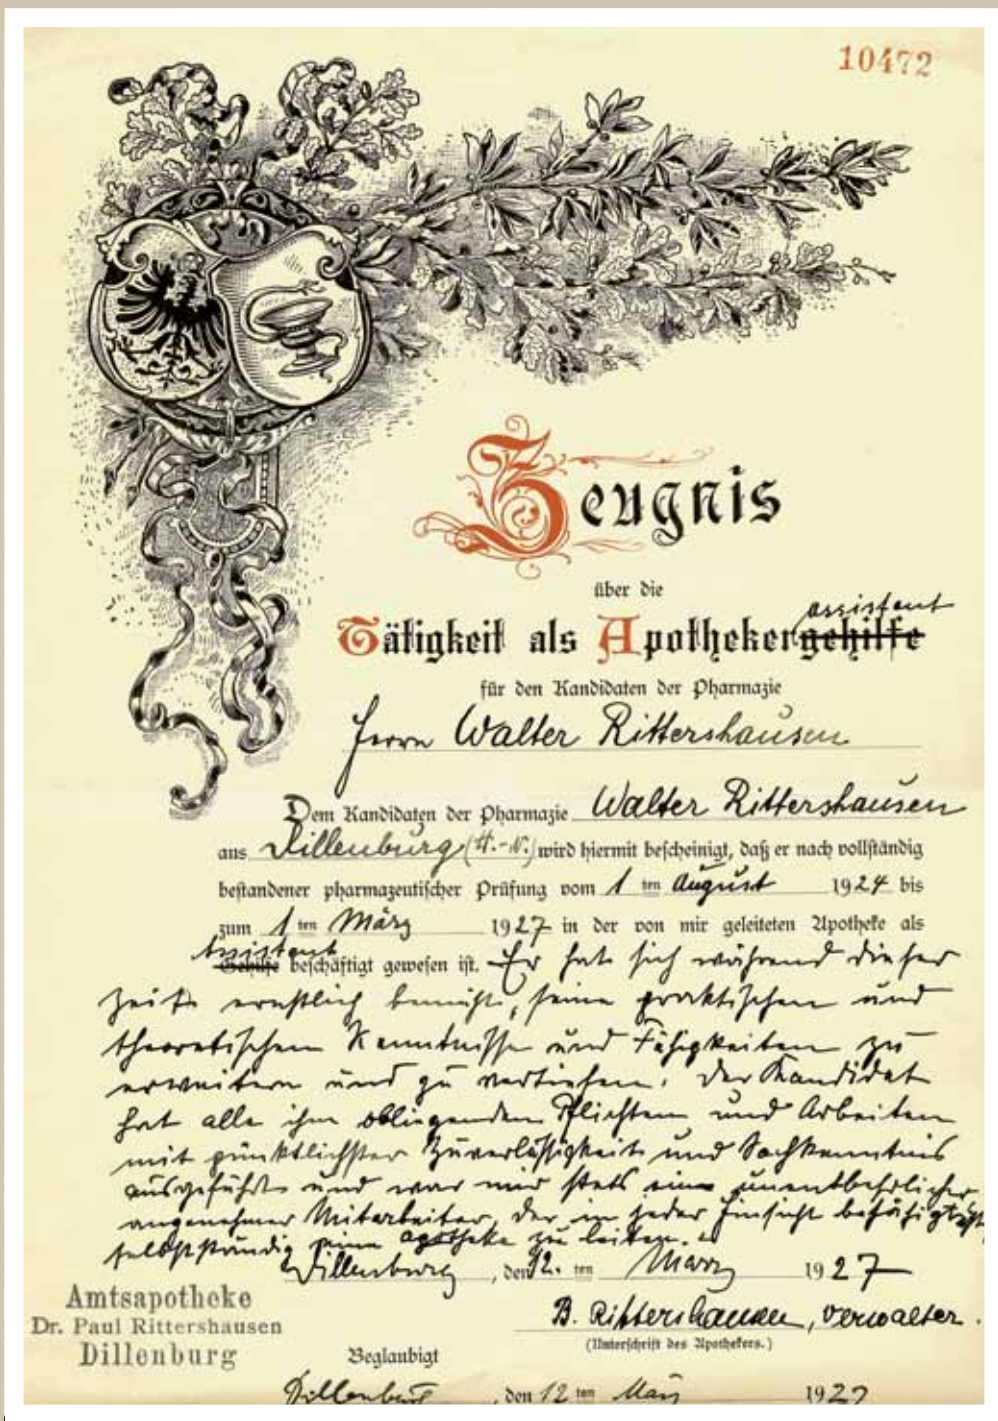 10472
Zeugnis
über die
assistent
Tätigkeit als Apothekergehilfe
für den Kandidaten der Pharmazie
Herrn Walter Rittershausen
Dem Kandidaten der Pharmazie Walter Rittershausen
aus Dillenburg (H.-N.) wird hiermit bescheinigt, daß er nach vollständig
bestandener pharmazeutischer Prüfung vom 1 ten August 1924 bis
zum 1 ten März 1927 in der von mir geleiteten Apotheke als
Assistent
Gehilfe beschäftigt gewesen ist. Er hat sich während dieser
Zeit ernstlich bemüht, seine praktischen und
theoretischen Kenntnisse und Fähigkeiten zu
erweitern und zu vertiefen. Der Kandidat
hat alle ihm obliegenden Pflichten und Arbeiten
mit pünktlichster Zuverlässigkeit und Sachkenntnis
ausgeführt und war mir stets ein unentbehrlicher
angenehmer Mitarbeiter, der in jeder Hinsicht befähigt ist,
selbstständig eine Apotheke zu leiten.
Dillenburg, den 12. ten März 1927
B. Rittershausen, Verwalter.
(Unterschrift des Apothekers.)
Amtsapotheke
Dr. Paul Rittershausen
Dillenburg
Beglaubigt
Dillenburg, den 12 ten März 1927